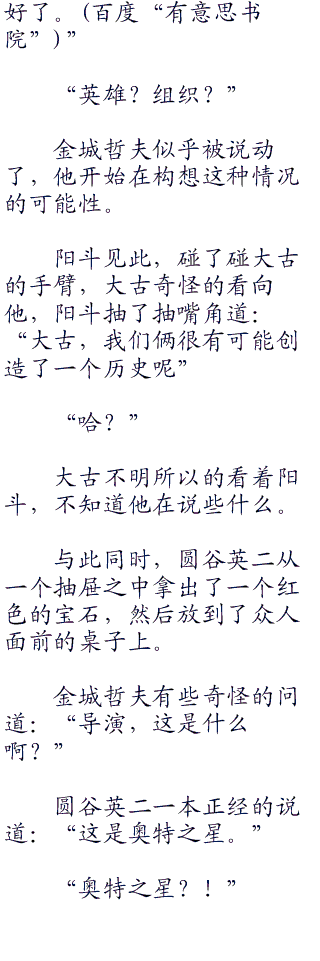 好了。(百度“有意思书
院”)”
“英雄？组织？”
金城哲夫似乎被说动
了，他开始在构想这种情况
的可能性。
阳斗见此，碰了碰大古
的手臂，大古奇怪的看向
他，阳斗抽了抽嘴角道：
“大古，我们俩很有可能创
造了一个历史呢”
“哈？”
大古不明所以的看着阳
斗，不知道他在说些什么。
与此同时，圆谷英二从
一个抽屉之中拿出了一个红
色的宝石，然后放到了众人
面前的桌子上。
金城哲夫有些奇怪的问
道：“导演，这是什么
啊？”
圆谷英二一本正经的说
道：“这是奥特之星。”
“奥特之星？！”